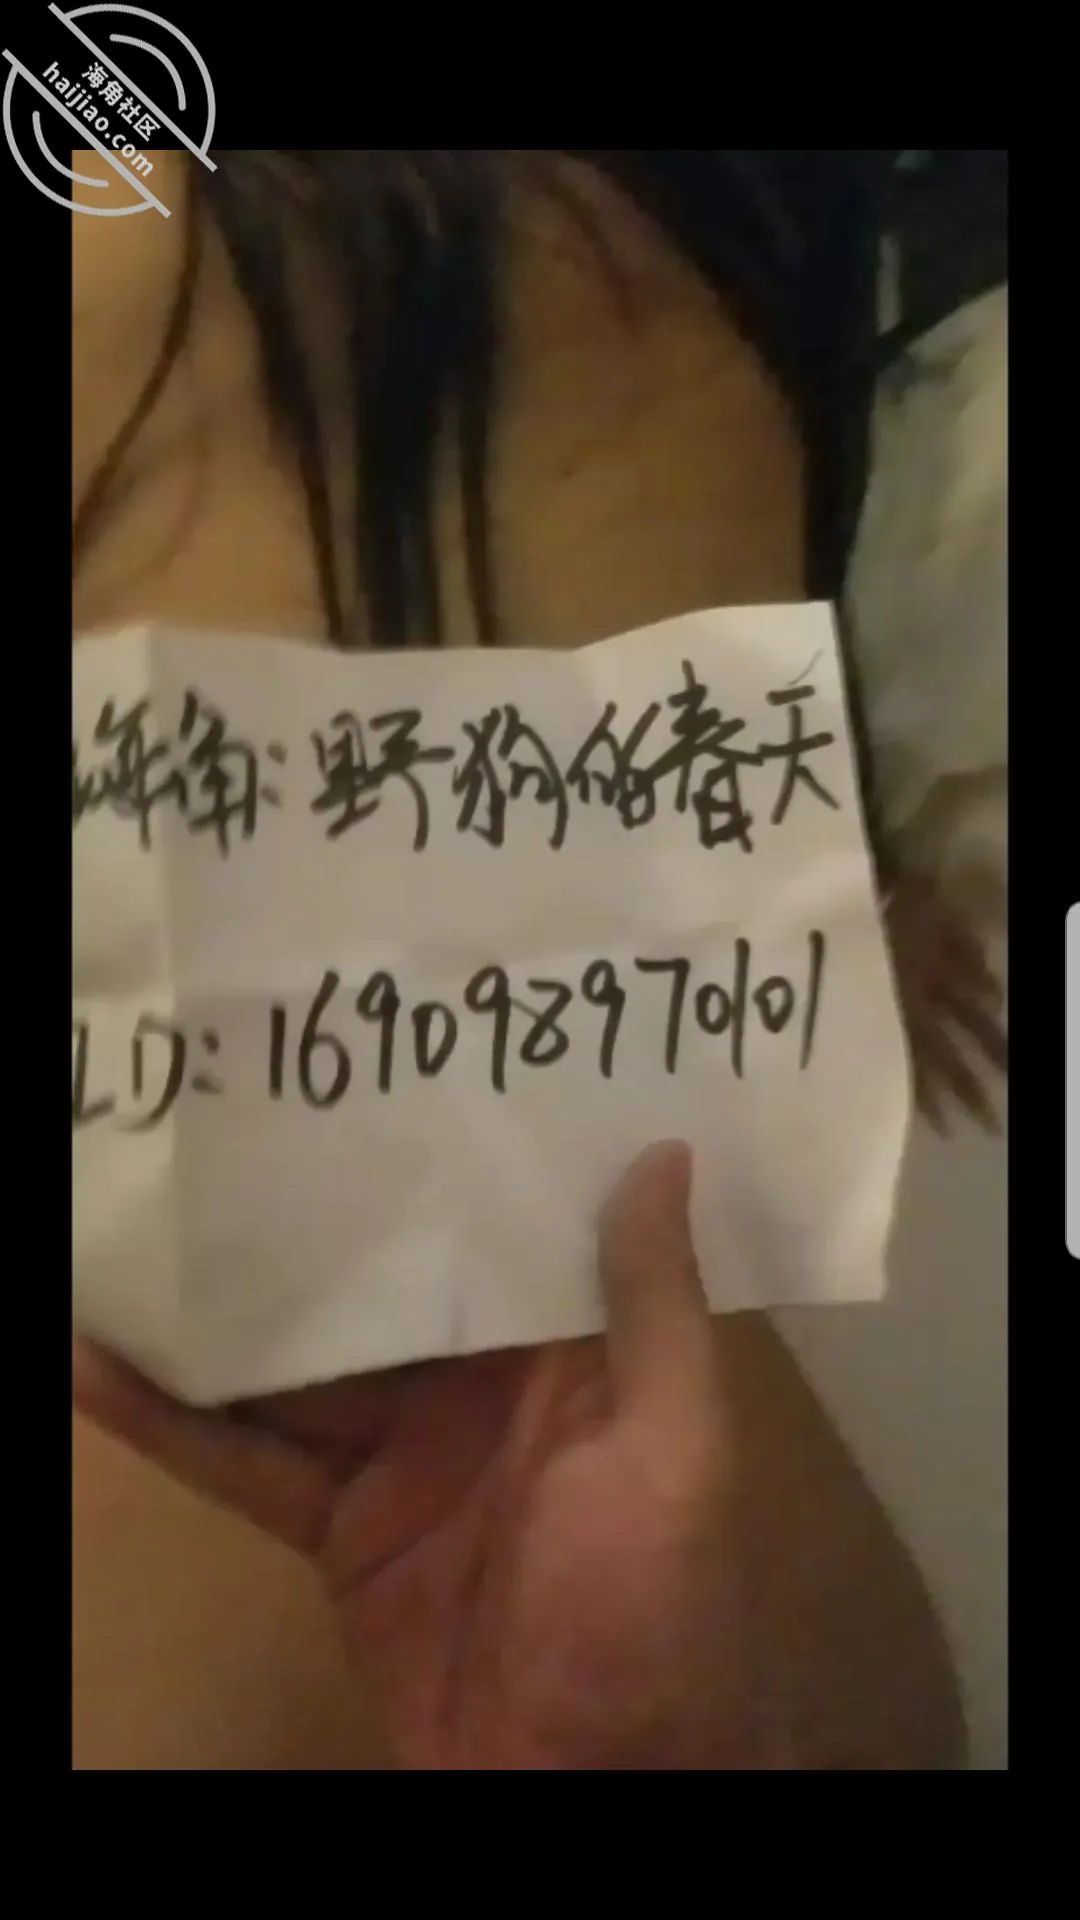 海角社区
haijiao.com
海角:野狗的春天
ID: 169098970101